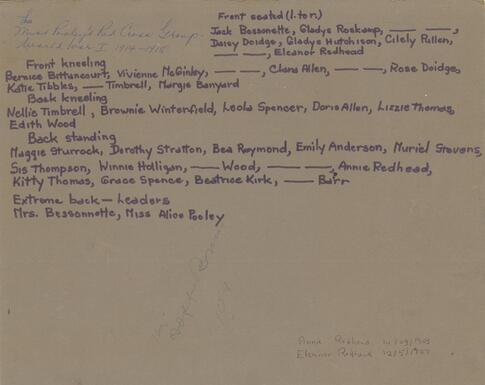 The
Miss Pooley's Red Cross Group
World War I 1914-1918
Front seated (l. to r.)
Jack Bessonette, Gladys Roskamp, — —,
Daisy Doidge, Gladys Hutchison, Cicely Pullen,
— —, Eleanor Redhead
Front kneeling
Bernice Bittancourt, Vivienne McGinley, — —, Clara Allen, — —, Rose Doidge,
Katie Tibbles, — Timbrell, Margie Banyard
Back kneeling
Nellie Timbrell, Brownie Winterfield, Leola Spencer, Doris Allen, Lizzie Thomas,
Edith Wood
Back standing
Maggie Sturrock, Dorothy Stratton, Bea Raymond, Emily Anderson, Muriel Stevens,
Sis Thompson, Winnie Holligan, — Wood, — —, Annie Redhead,
Kitty Thomas, Grace Spence, Beatrice Kirk, — Barr
Extreme back — Leaders
Mrs. Bessonnette, Miss Alice Pooley
Annie Redhead
Eleanor Redhead 12/5/1907